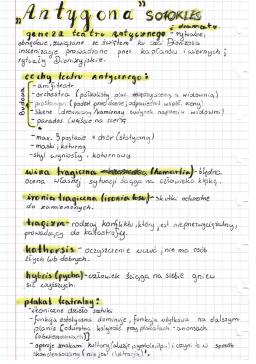 „Antygona" SOFOKLES
geneza teatru antycznego i dramatu - rytualne,
obrzędowe, związane ze świętem ku czci Dionizosa
inscenizacje prowadzone przez kapłanów i wiernych i
rytuały Dionizyjskie.
cechy teatru antycznego:
Budowa
- amfiteatr
- orchestra (półkolisty plac scena a widownia)
- proskenion (podest przed skene; odpowiednik współ. sceny)
- skene (drewniany/kamienny budynek naprzeciw widowni)
- parados (wejście na scenę)
- max. 3 postawe + chór (statyczna)
- maski, koturny
- styl wyniosły, koturnowy
wina tragiczna (hamartia) - błędna
ocena własnej sytuacji ściąga na człowieka klęskę.
ironia tragiczna (ironia losu) - skutki odwrotne
do zamierzonych.
tragizm - rodzaj konfliktu, który jest nieprzezwyciężalny,
prowadzący do katastrofy.
katharsis - oczyszczenie uczuć, nie ma osób
złych lub dobrych.
hybris (pycha) - człowiek ściąga na siebie gniew
sił wyższych.
plakat teatralny:
- skończone dzieło sztuki
- funkcja estetyczna dominuje, funkcja użytkowa na dalszym
planie (odwrotna kolejność przy plakatach - anonsach
)
- operuje znakami kultury (aluzje, symbolika) i czyni to w sposób
skondensowany (nie jest ilustracją).